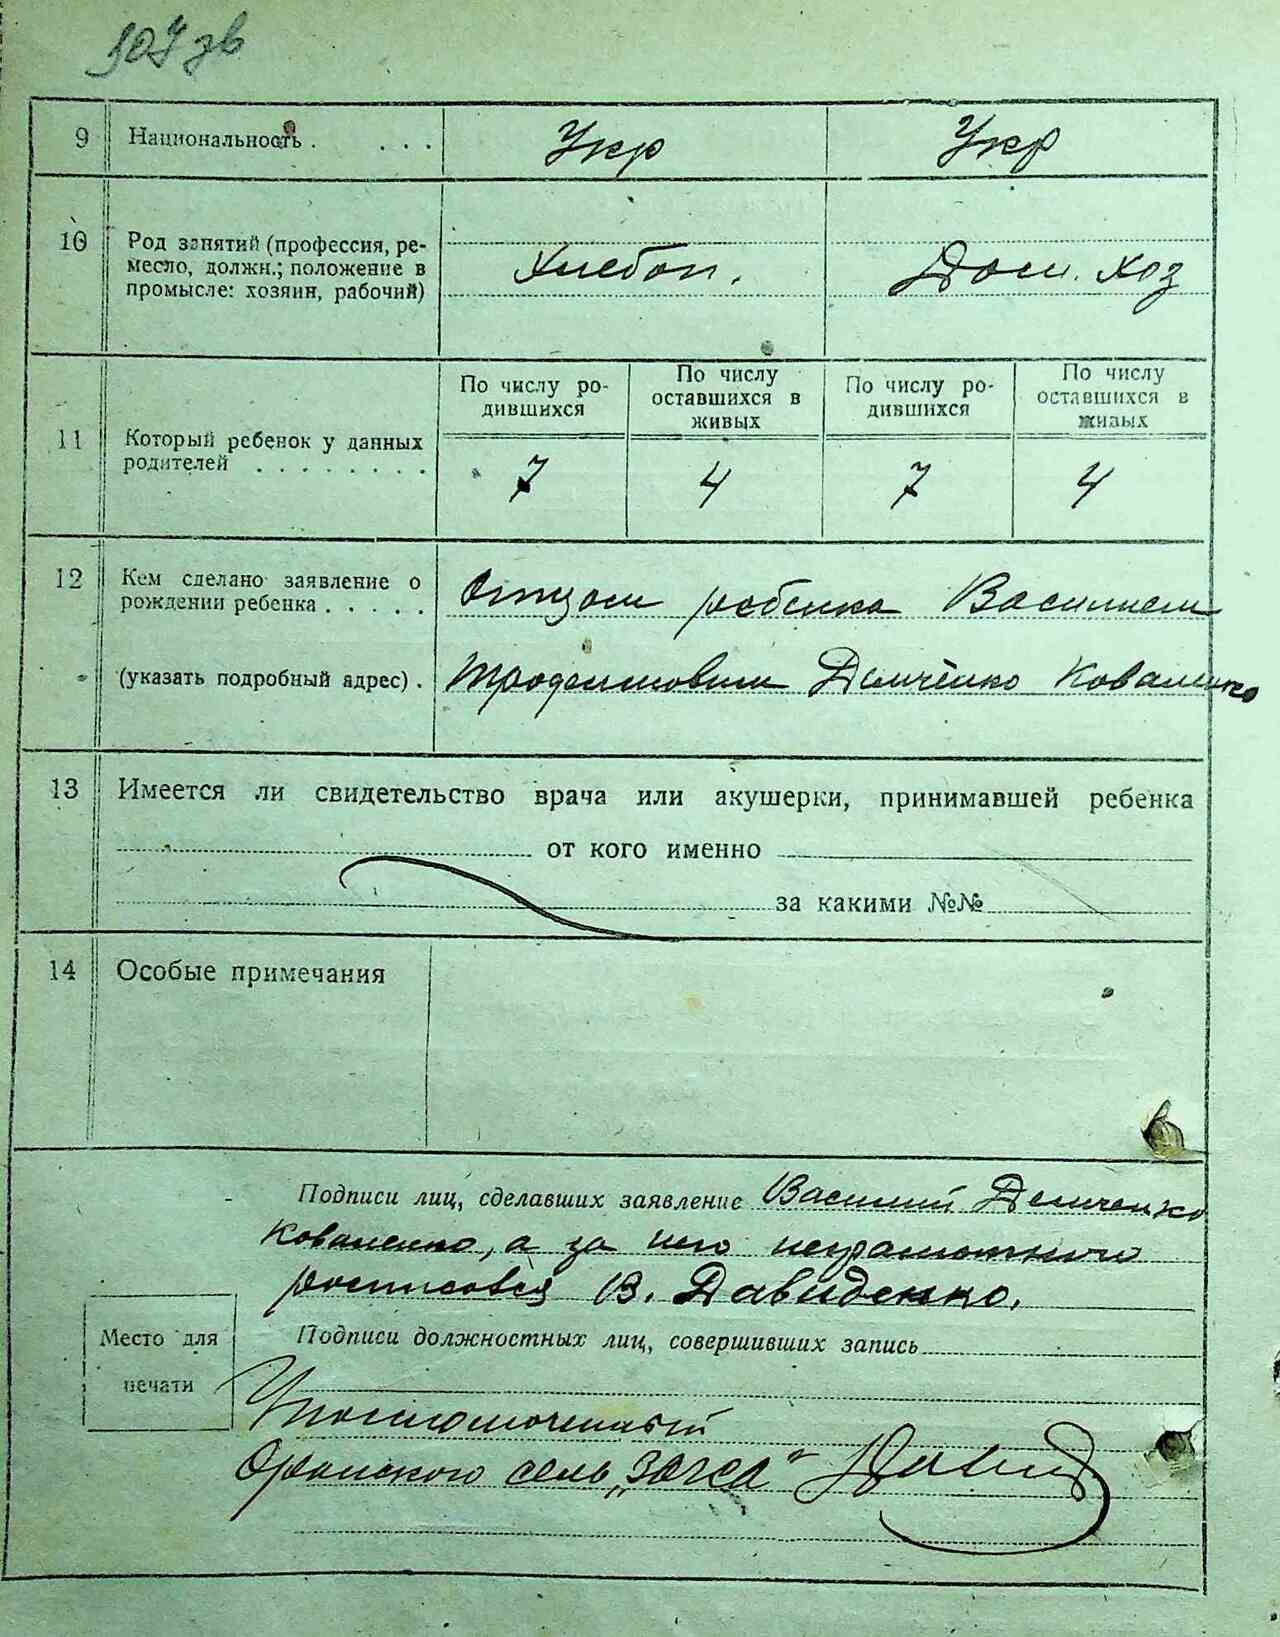 107 зв
9 Национальность . . . . Укр Укр
10 Род занятий (профессия, ре-
месло, должн.; положение в
промысле: хозяин, рабочий)
Хлебоп. Дом. хоз
По числу ро-
дившихся
По числу
оставшихся в
живых
По числу ро-
дившихся
По числу
оставшихся в
живых
11 Который ребенок у данных
родителей . . . . . . . .
7 4 7 4
12 Кем сделано заявление о
рождении ребенка . . . . .
(указать подробный адрес) .
Отцом ребенка Василием
Демченко Коваленко
13 Имеется ли свидетельство врача или акушерки, принимавшей ребенка
от кого именно
за какими №№
14 Особые примечания
Подписи лиц, сделавших заявление Василий Демченко
Коваленко, а за него неграмотного
росписовся В. Давиденко.
Место для
печати
Подписи должностных лиц, совершивших запись
Уполномоченный
сель „загса"